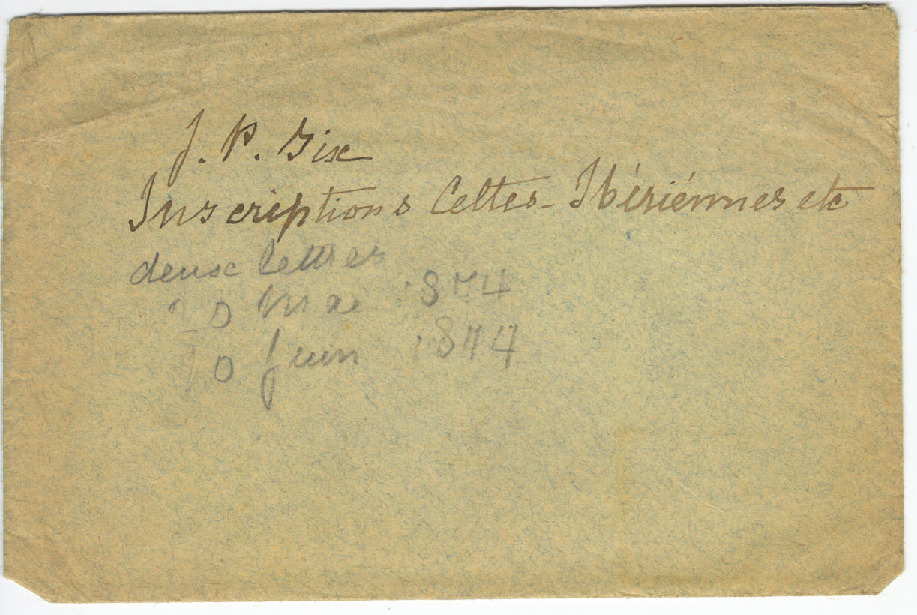 J. P. Six
Inscriptions Celtes-Ibériénnes etc
deux lettres
20 Mai 1874
10 Juin 1874